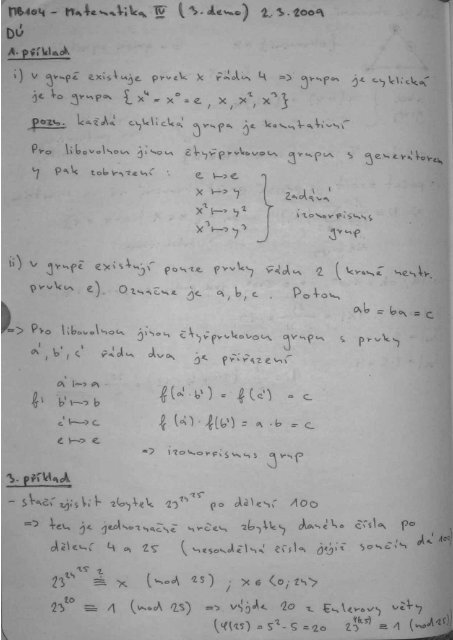 MB104 - Matematika IV (3. demo) 2.3.2009
DÚ
1. příklad
i) v grupě existuje prvek x řádu 4 => grupa je cyklická
je to grupa {x⁴ = x⁰ = e, x, x², x³}
pozn. každá cyklická grupa je komutativní
Pro libovolnou jinou čtyřprvkovou grupu s generátorem
y pak zobrazení : e ↦ e
x ↦ y
x² ↦ y²
x³ ↦ y³
zadává
izomorfismus
grup
ii) v grupě existují pouze prvky řádu 2 (kromě neutr.
prvku e). Označme je a, b, c. Potom
ab = ba = c
=> Pro libovolnou jinou čtyřprvkovou grupu s prvky
a', b', c' řádu dva je přiřazení
a' ↦ a
f: b' ↦ b f(a'·b') = f(c') = c
c' ↦ c f(a')·f(b') = a·b = c
e ↦ e
=> izomorfismus grup
3. příklad
- stačí zjistit zbytek 23^24^25 po dělení 100
=> ten je jednoznačně určen zbytky daného čísla po
dělení 4 a 25 (nesoudělná čísla jejíž součin dá 100)
23^24^25 ≡? x (mod 25) ; x ∈ <0; 24>
23^20 ≡ 1 (mod 25) => výjde 20 z Eulerovy věty
(φ(25) = 5² - 5 = 20 23^φ(25) ≡ 1 (mod 25))